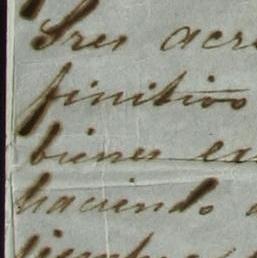 Sres acre
finitivo
bienes ex
haciendo